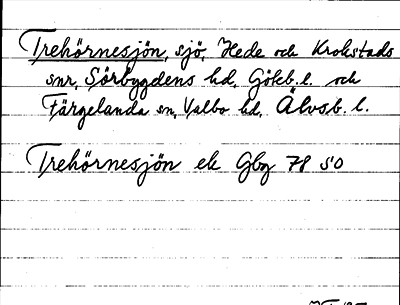 Trehörnesjön, sjö, Hede och Krokstads
snr, Sörbygdens hd, Göteb. l. och
Färgelanda sn, Valbo hd, Älvsb. l.
Trehörnesjön ek Gbg 78 SO